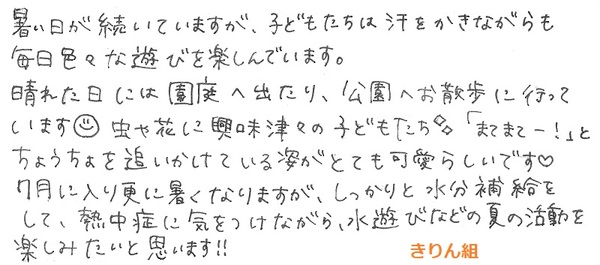 暑い日が続いていますが、子どもたちは汗をかきながらも
毎日色々な遊びを楽しんでいます。
晴れた日には園庭へ出たり、公園へお散歩に行って
います☺ 虫や花に興味津々の子どもたち 「まてまてー!」と
ちょうちょを追いかけている姿がとても可愛らしいです♡
7月に入り更に暑くなりますが、しっかりと水分補給を
して、熱中症に気をつけながら、水遊びなどの夏の活動を
楽しみたいと思います!!
きりん組